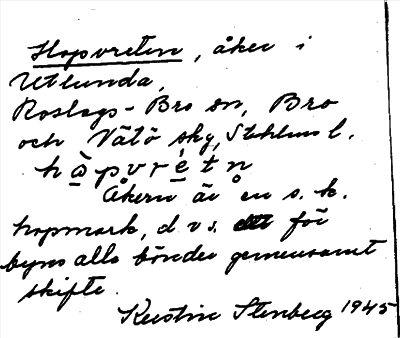 Hopvreten, åker i
Utlunda,
Roslags-Bro sn, Bro
och Vätö skg, Sthlms l.
hɷ̀pvrétn
Åkern är en s. k.
hopmark, d. v. s. för
byns alla bönder gemensamt
skifte.
Kerstin Stenberg 1945